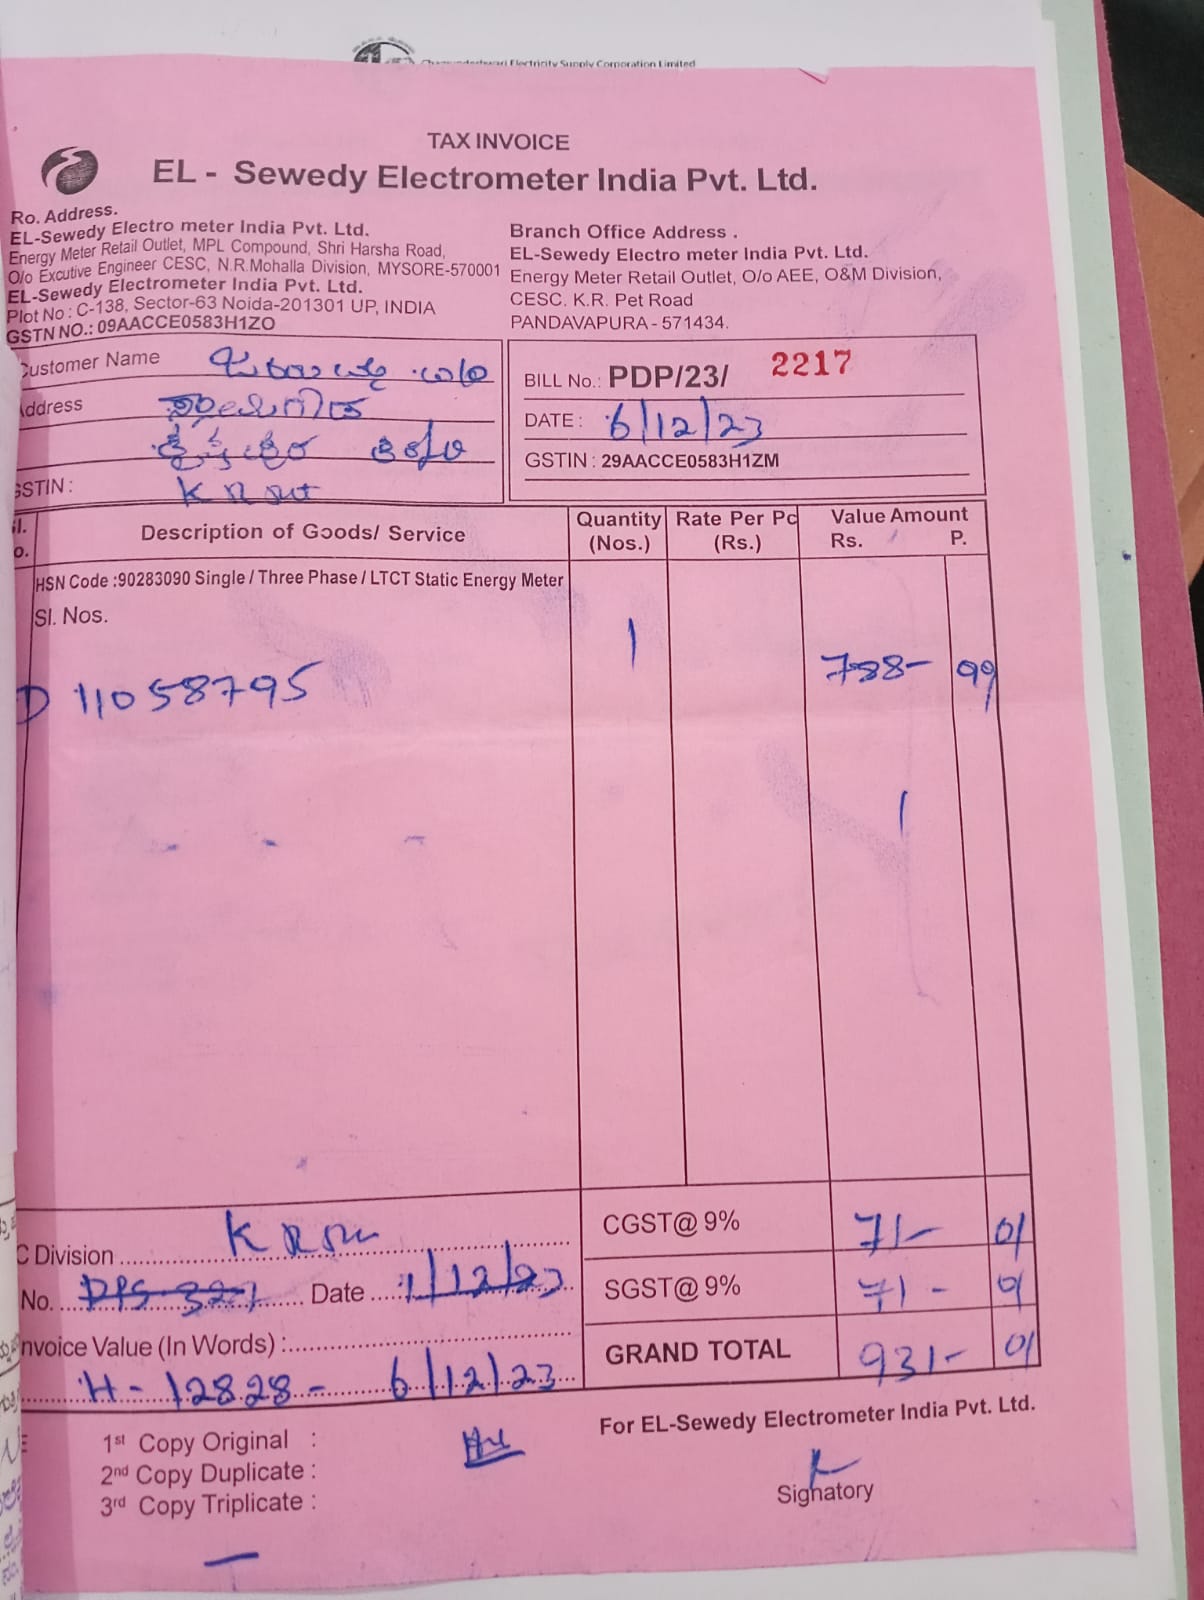 Electricity Supply Corporation Limited
TAX INVOICE
EL - Sewedy Electrometer India Pvt. Ltd.
Ro. Address.
EL-Sewedy Electro meter India Pvt. Ltd.
Energy Meter Retail Outlet, MPL Compound, Shri Harsha Road,
O/o Excutive Engineer CESC, N.R.Mohalla Division, MYSORE-570001
EL-Sewedy Electrometer India Pvt. Ltd.
Plot No : C-138, Sector-63 Noida-201301 UP, INDIA
GSTN NO.: 09AACCE0583H1ZO
Branch Office Address .
EL-Sewedy Electro meter India Pvt. Ltd.
Energy Meter Retail Outlet, O/o AEE, O&M Division,
CESC. K.R. Pet Road
PANDAVAPURA - 571434.
Customer Name
Address
GSTIN :
BILL No.: PDP/23/ 2217
DATE : 6/12/23
GSTIN : 29AACCE0583H1ZM
Description of Goods/ Service
Quantity (Nos.)
Rate Per Pc (Rs.)
Value Amount
Rs. P.
HSN Code :90283090 Single / Three Phase / LTCT Static Energy Meter
Sl. Nos.
11058795 1 788- 99
C Division
CGST@ 9% 71- 01
No. Date 1/12/23
SGST@ 9% 71-
Invoice Value (In Words) :
GRAND TOTAL 931- 01
H - 12828 - 6/12/23
For EL-Sewedy Electrometer India Pvt. Ltd.
1st Copy Original :
2nd Copy Duplicate :
3rd Copy Triplicate :
Signatory